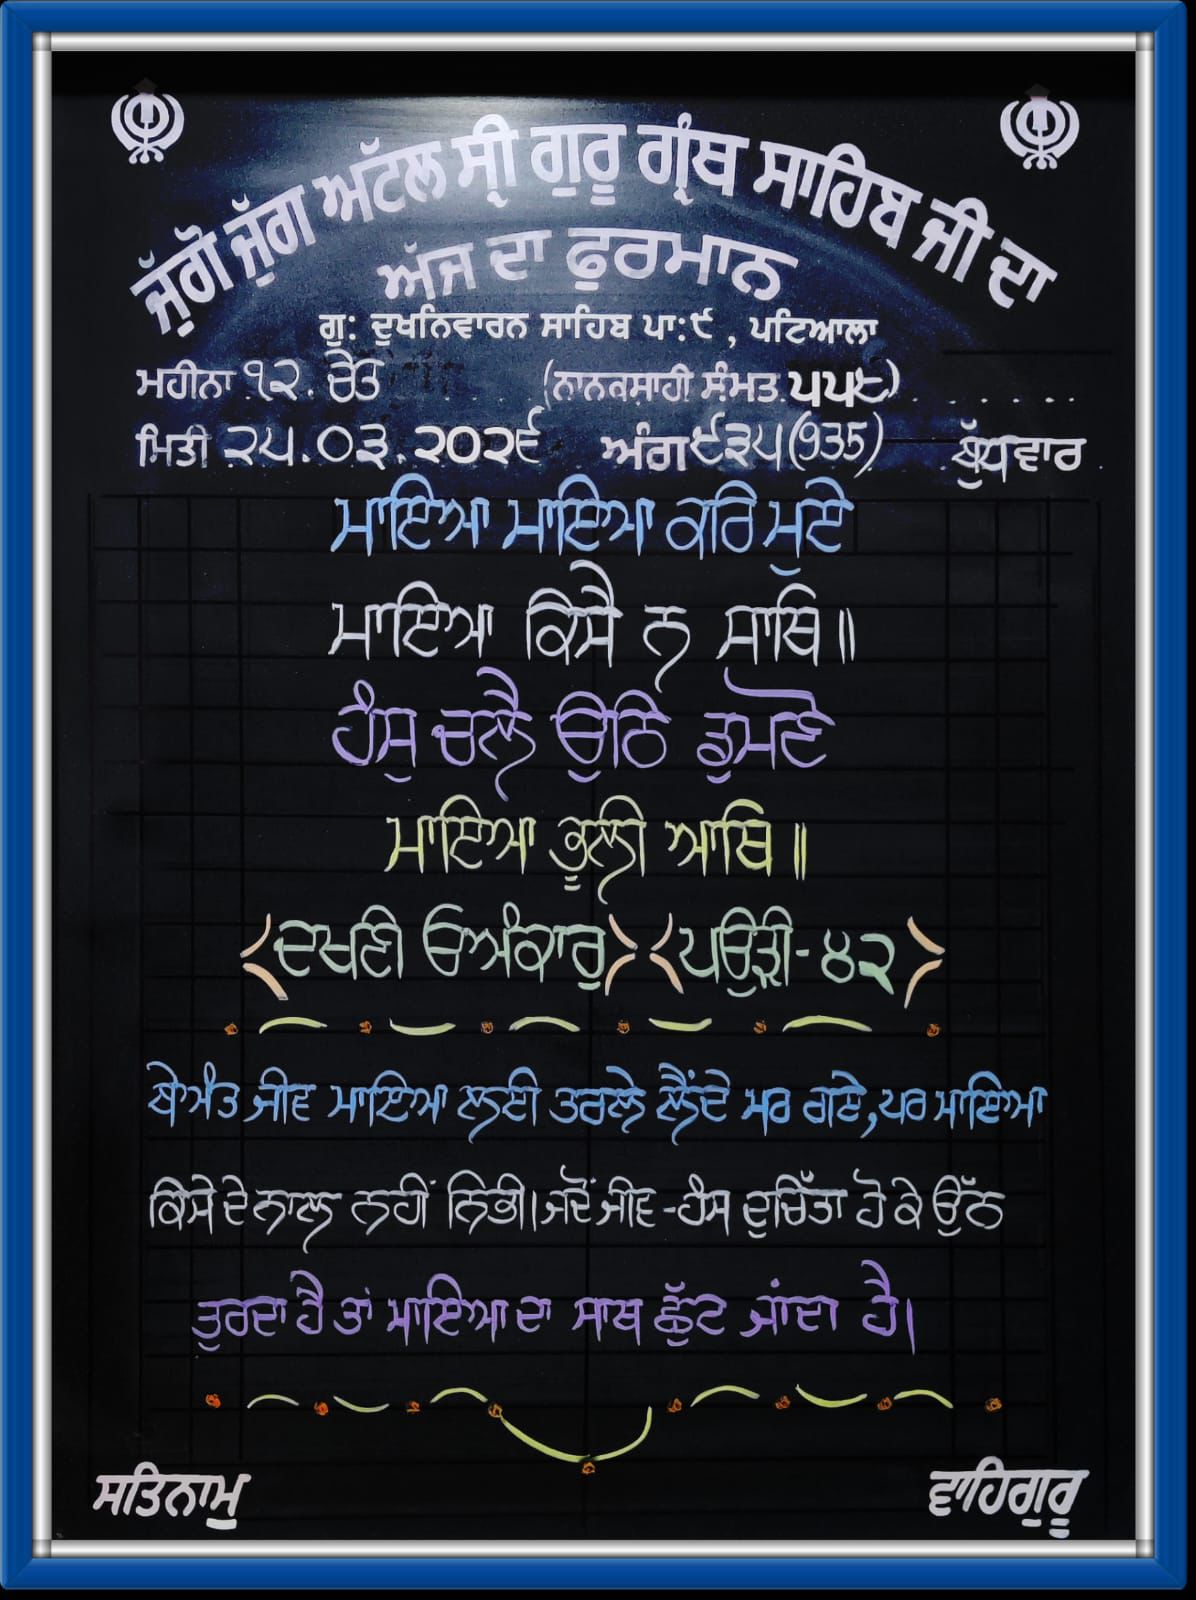 ਜੁੱਗੋ ਜੁੱਗ ਅਟੱਲ ਸ੍ਰੀ ਗੁਰੂ ਗ੍ਰੰਥ ਸਾਹਿਬ ਜੀ ਦਾ
ਅੱਜ ਦਾ ਫੁਰਮਾਨ
ਗੁ: ਦੁਖਨਿਵਾਰਨ ਸਾਹਿਬ ਪਾ:੯ , ਪਟਿਆਲਾ
ਮਹੀਨਾ ੧੨. ਚੇਤ (ਨਾਨਕਸ਼ਾਹੀ ਸੰਮਤ ੫੫੮)
ਮਿਤੀ ੨੫.੦੩.੨੦੨੬ ਅੰਗ ੯੩੫(935) ਬੁੱਧਵਾਰ
ਮਾਇਆ ਮਾਇਆ ਕਰਿ ਮੁਏ
ਮਾਇਆ ਕਿਸੈ ਨ ਸਾਥਿ॥
ਹੰਸੁ ਚਲੈ ਉਠਿ ਡੁਮਣੋ
ਮਾਇਆ ਭੂਲੀ ਆਥਿ॥
<ਦਖਣੀ ਓਅੰਕਾਰੁ> <ਪਉੜੀ-੪੨>
ਬੇਅੰਤ ਜੀਵ ਮਾਇਆ ਲਈ ਤਰਲੇ ਲੈਂਦੇ ਮਰ ਗਏ, ਪਰ ਮਾਇਆ
ਕਿਸੇ ਦੇ ਨਾਲ ਨਹੀਂ ਨਿਭੀ। ਜਦੋਂ ਜੀਵ-ਹੰਸ ਦੁਚਿੱਤਾ ਹੋ ਕੇ ਉੱਠ
ਤੁਰਦਾ ਹੈ ਤਾਂ ਮਾਇਆ ਦਾ ਸਾਥ ਛੁੱਟ ਜਾਂਦਾ ਹੈ।
ਸਤਿਨਾਮੁ ਵਾਹਿਗੁਰੂ